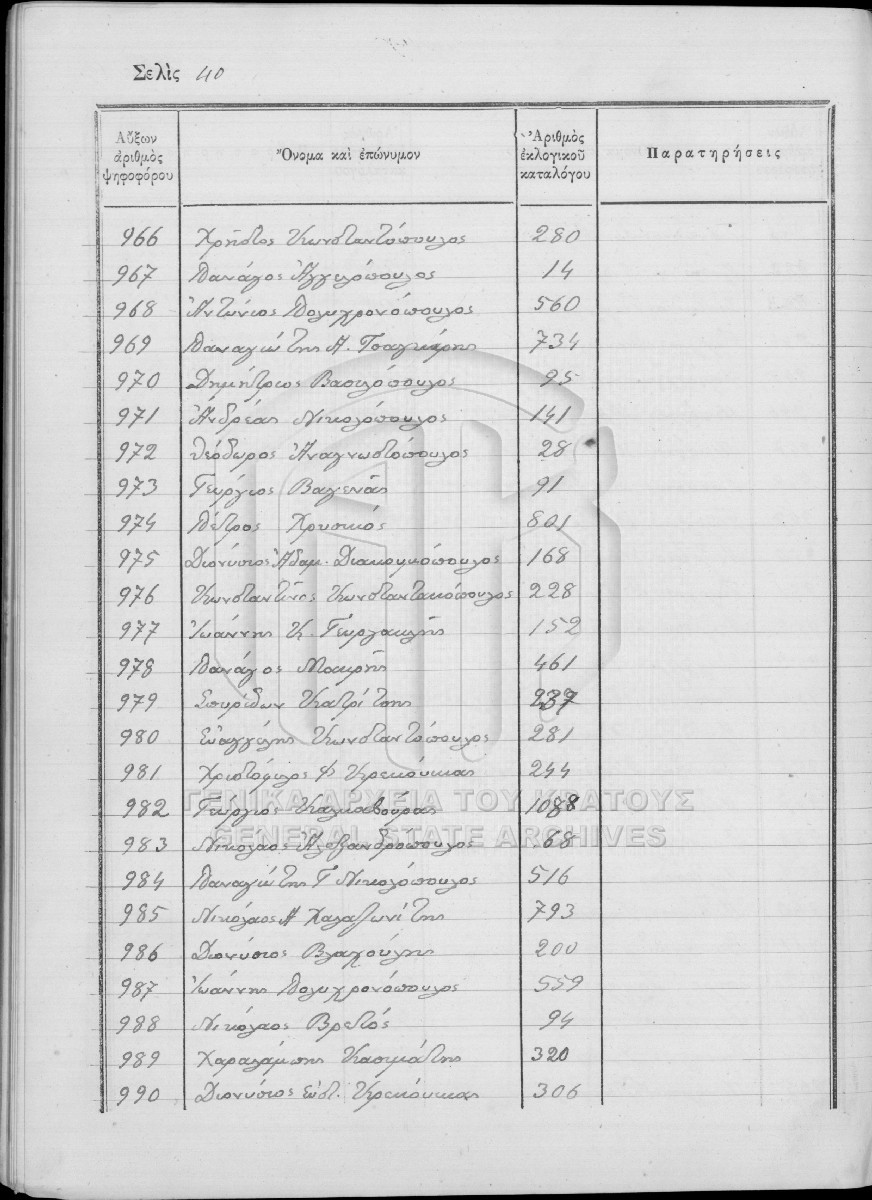 Σελὶς 40
Αὔξων ἀριθμὸς ψηφοφόρου Ὄνομα καὶ ἐπώνυμον Ἀριθμὸς ἐκλογικοῦ καταλόγου Παρατηρήσεις
966 Χρῆστος Κωνσταντόπουλος 280
967 Πανάγος Ἀγγελόπουλος 14
968 Ἀντώνιος Πολυχρονόπουλος 560
969 Παναγιώτης Α. Τσαγκάρης 734
970 Δημήτριος Βασιλόπουλος 95
971 Ἀνδρέας Νικολόπουλος 141
972 Θεόδωρος Ἀναγνωστόπουλος 28
973 Γεώργιος Βαγενᾶς 91
974 Πέτρος Χρυσικός 801
975 Διονύσιος Ἀδαμ. Διακουμόπουλος 168
976 Κωνσταντῖνος Κωνσταντακόπουλος 228
977 Ἰωάννης Κ. Γεωργακλῆς 152
978 Πανάγος Μακρῆς 461
979 Σπυρίδων Κατρίτσης 237
980 Εὐαγγέλης Κωνσταντόπουλος 281
981 Χριστόφιλος Κρεκούκιας 244
982 Γεώργιος Καλκαβούρας 1088
983 Νικόλαος Ἀλεξανδρόπουλος 68
984 Παναγιώτης Γ Νικολόπουλος 516
985 Νικόλαος Α Χαλαζωνίτης 793
986 Διονύσιος 200
987 Ἰωάννης Πολυχρονόπουλος 559
988 Νικόλαος Βρετός 94
989 Χαραλάμπης Κασιμάτης 320
990 Διονύσιος Εὐστ. Κρεκούκιας 306
ΓΕΝΙΚΑ ΑΡΧΕΙΑ ΤΟΥ ΚΡΑΤΟΥΣ
GENERAL STATE ARCHIVES